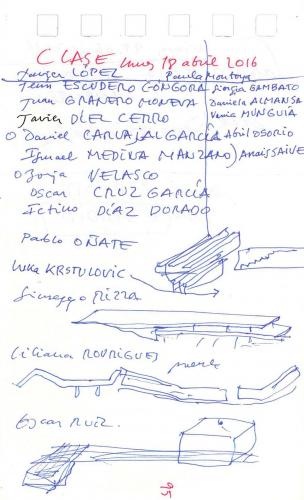 CLASE lunes 18 abril 2016
LÓPEZ Paula Montoya
ESCUDERO GÓNGORA Giorgia GAMBATO
Juan GRANERO MONEVA Daniela ALMANSA
Javier DÍEZ CERRO MUNGUÍA
Daniel CARVAJAL GARCÍA Abril OSORIO
Ismael MEDINA MANZANO
Borja VELASCO
Oscar CRUZ GARCÍA
Ictino DÍAZ DORADO
Pablo OÑATE
Luka KRSTULOVIC
Giuseppe RIZZA
Liliana RODRIGUEZ
Oscar RUIZ.